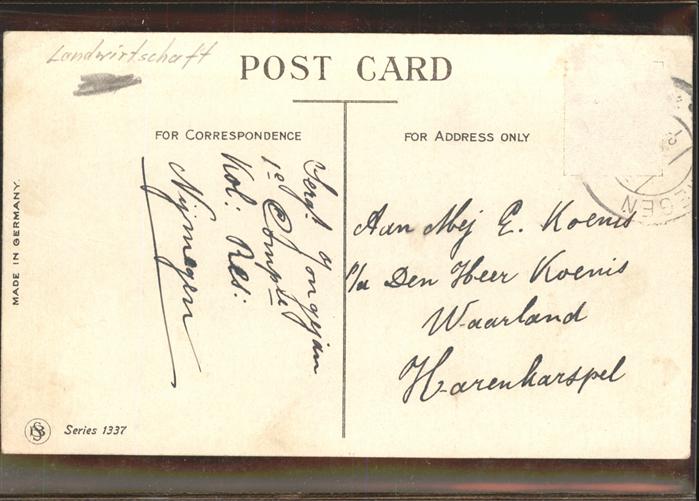 Landwirtschaft
POST CARD
FOR CORRESPONDENCE
FOR ADDRESS ONLY
Sergt
1e Compie
Kol: Res:
Nijmegen
Aan Mej E. Koenis
p/a Den Heer Koenis
Waarland
Harenkarspel
MADE IN GERMANY.
Series 1337